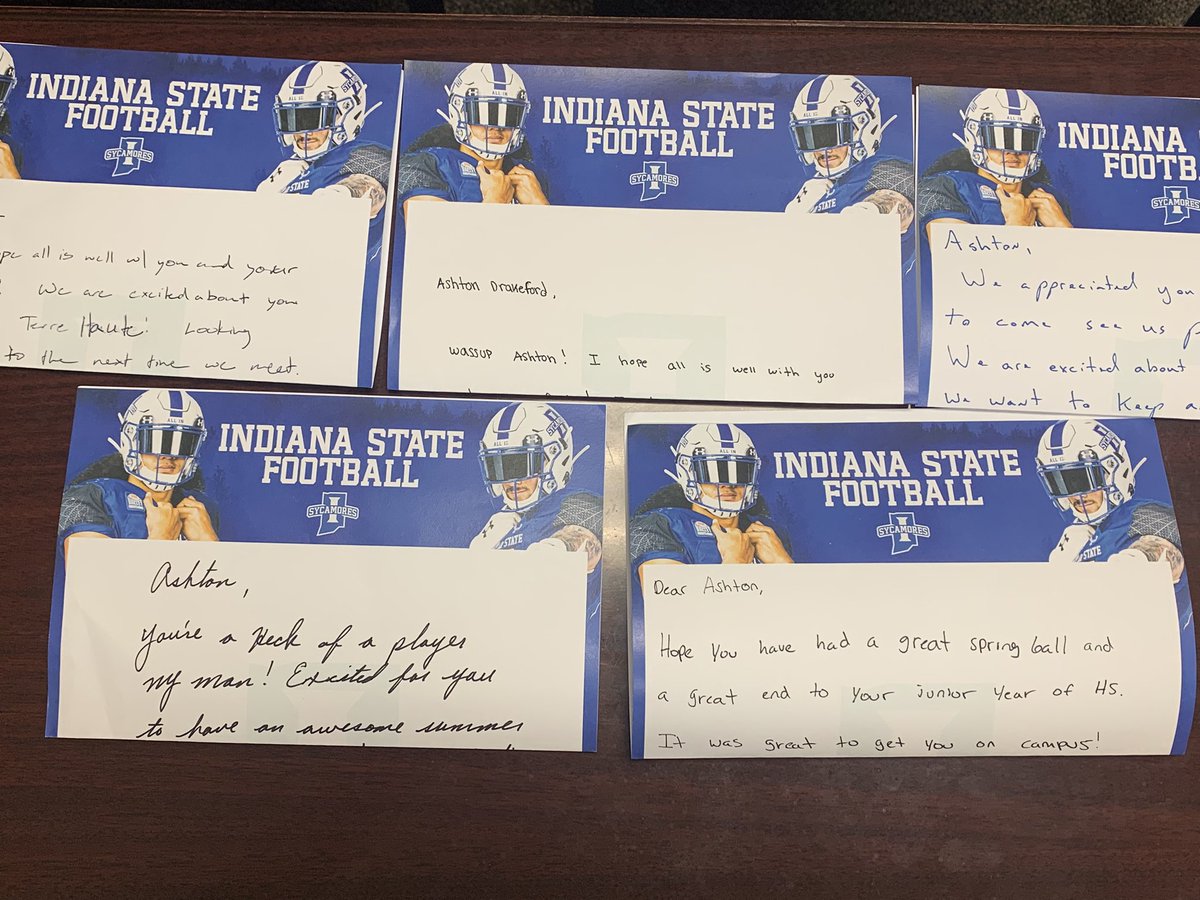 INDIANA STATE
FOOTBALL
SYCAMORES
ALL IN
all is well w/ you and your
We are excited about you
Terre Haute! Looking
to the next time we meet.
INDIANA STATE
FOOTBALL
SYCAMORES
ALL IN
STATE
Ashton Drakeford,
wassup Ashton! I hope all is well with you
INDIANA
FOOTB
SYCAMORES
Ashton,
We appreciated you
to come see us
We are excited about
We want to keep
INDIANA STATE
FOOTBALL
SYCAMORES
ALL IN
STATE
Ashton,
You're a heck of a player
my man! Excited for you
to have an awesome summer
INDIANA STATE
FOOTBALL
SYCAMORES
ALL IN
STATE
Dear Ashton,
Hope you have had a great spring ball and
a great end to your junior year of HS.
It was great to get you on campus!